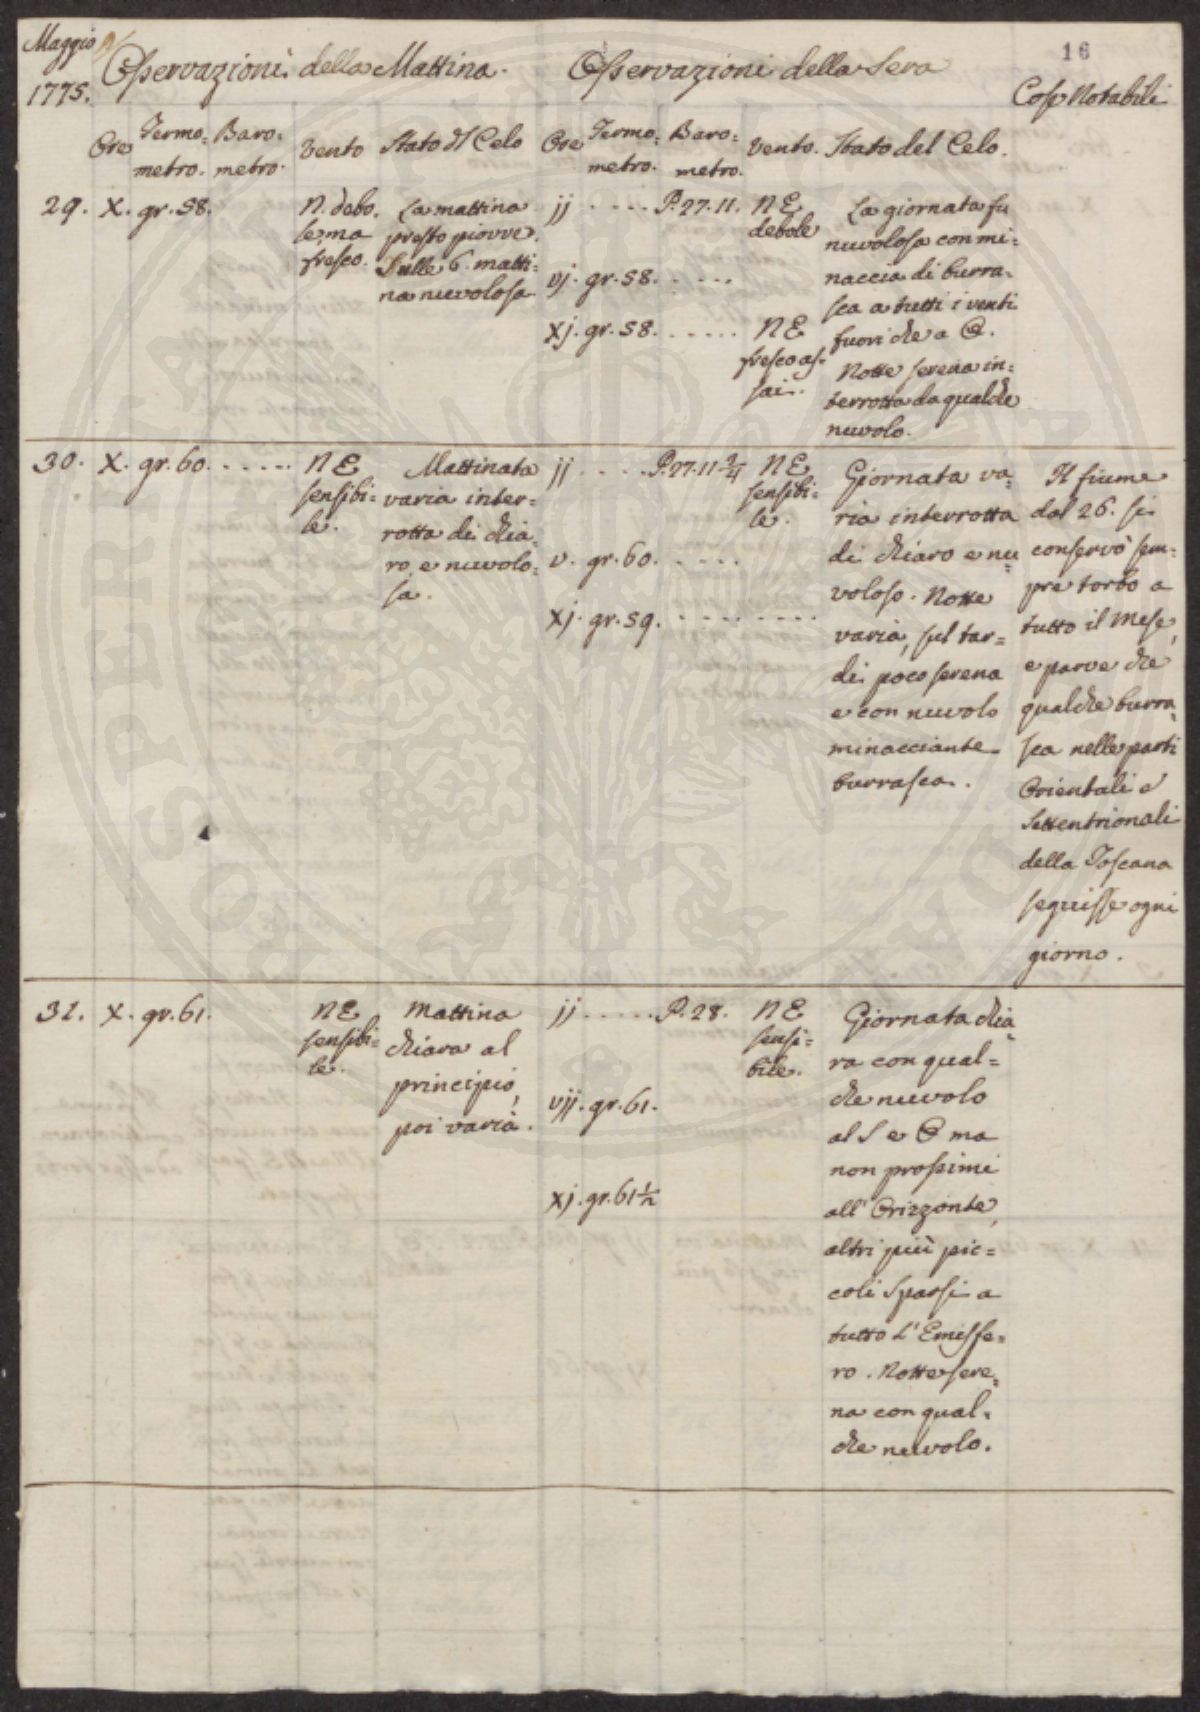 Maggio
1775.
Osservazioni della Mattina.
Osservazioni della Sera
16
Cose Notabili
Ore Termo= metro. Baro= metro. Vento Stato dl Celo Ore Termo= metro. Baro= metro. Vento. Stato del Celo.
29. X. gr. 58.
N. debo.
le, ma
fresco.
La mattina
presto piovve.
Sulle 6. matti=
na nuvolosa
jj ..... P. 27. 11.
vj. gr. 58. .....
xj. gr. 58. .....
NE
debole
NE
fresco as=
sai.
La giornata fu
nuvolosa con mi=
naccia di burra=
sca a tutti i venti
fuori che a O.
Notte serena in=
terrotta da qualche
nuvolo.
30. X. gr. 60. ......
NE
sensibi=
le.
Mattinata
varia inter=
rotta di chia=
ro, e nuvolo=
sa.
jj ..... P. 27. 11. 3/4
v. gr. 60. .....
xj. gr. 59. ........
NE
sensibi=
le.
Giornata va=
ria interrotta
di chiaro e nu=
voloso. Notte
varia, sul tar=
di poco serena
e con nuvolo
minacciante
burrasca.
Il fiume
dal 26. si
conservò sem=
pre torbo a
tutto il Mese,
e parve che
qualche burra=
sca nelle parti
Orientali e
Settentrionali
della Toscana
seguisse ogni
giorno.
31. X. gr. 61.
NE
sensibi=
le.
Mattina
chiara al
principio,
poi varia.
jj ..... P. 28.
vjj. gr. 61.
xj. gr. 61 1/2
NE
sensi=
bile.
Giornata chia=
ra con qual=
che nuvolo
al S e O ma
non prossimi
all' Orizzonte,
altri più pic=
coli sparsi a
tutto l' Emisfe=
ro. Notte sere=
na con qual=
che nuvolo.
PROSPERITA